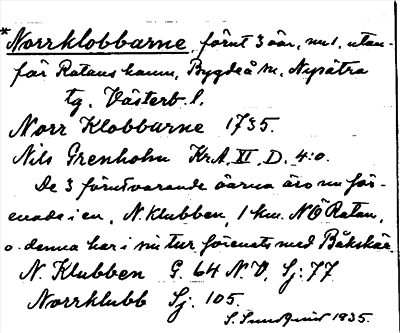 *Norrklobbarne, förut 3 öar, nu 1, utan-
för Ratans hamn, Bygdeå sn, Nysätra
tg. Västerb. l.
Norr Klobbarne 1735.
Nils Grenholm KrA, XI, D. 4:o.
De 3 förutvarande öarna äro nu för-
enade i en, N. Klubben, 1 km. NÖ Ratan,
o. denna har i sin tur förenats med Båkskär.
N. Klubben G. 64 N.V, Sj: 77
Norrklubb Sj: 105.
S. Sundqvist 1935.